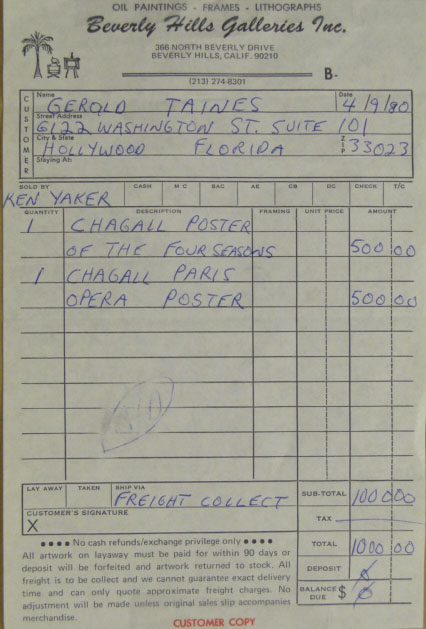 OIL PAINTINGS - FRAMES - LITHOGRAPHS
Beverly Hills Galleries Inc.
366 NORTH BEVERLY DRIVE
BEVERLY HILLS, CALIF. 90210
(213) 274-8301
B-
CUSTOMER
Name GEROLD TAINES Date 4/9/80
Street Address 6122 WASHINGTON ST. SUITE 101
City & State HOLLYWOOD FLORIDA ZIP 33023
Staying At:
SOLD BY CASH M C BAC AE CB DC CHECK T/C
KEN YAKER
QUANTITY DESCRIPTION FRAMING UNIT PRICE AMOUNT
1 CHAGALL POSTER
OF THE FOUR SEASONS 500 00
1 CHAGALL PARIS
OPERA POSTER 500 00
LAY AWAY TAKEN SHIP VIA FREIGHT COLLECT SUB-TOTAL 1000 00
CUSTOMER'S SIGNATURE
X
TAX
No cash refunds/exchange privilege only
TOTAL 1000 00
All artwork on layaway must be paid for within 90 days or
deposit will be forfeited and artwork returned to stock. All
freight is to be collect and we cannot guarantee exact delivery
time and can only quote approximate freight charges. No
adjustment will be made unless original sales slip accompanies
merchandise.
DEPOSIT
BALANCE DUE $
CUSTOMER COPY